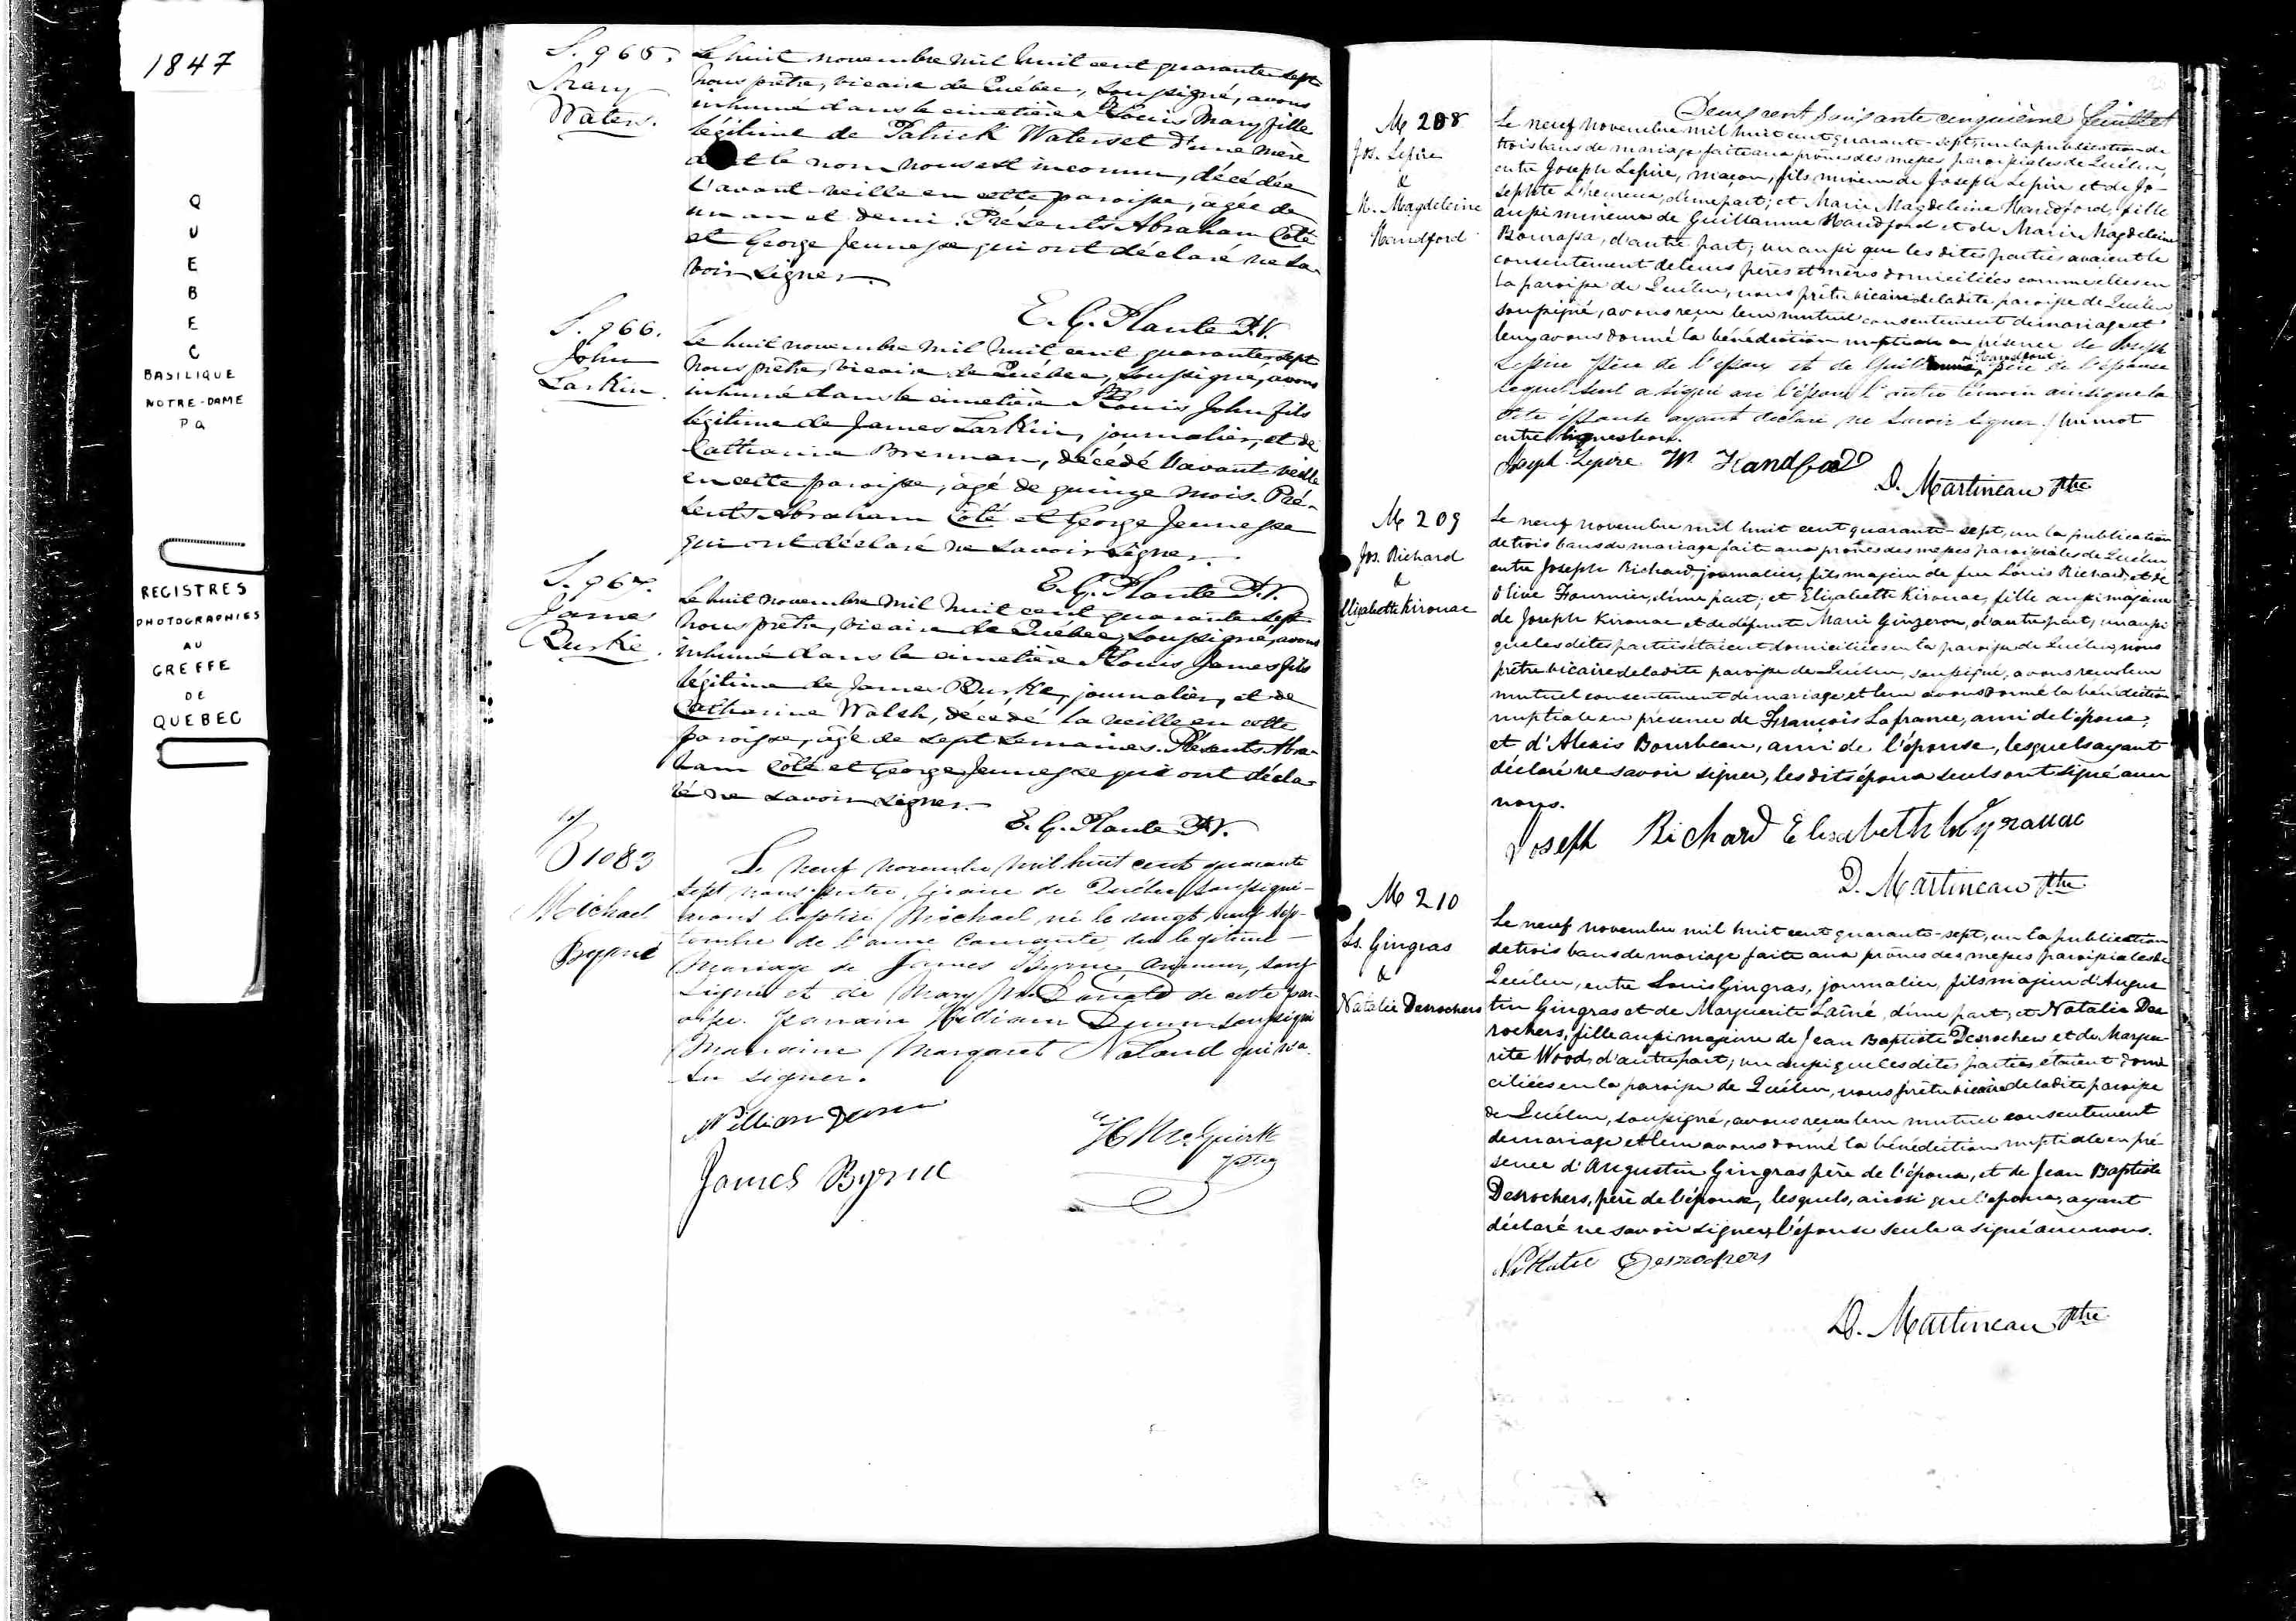 1847
Q
U
E
B
E
C
BASILIQUE
NOTRE-DAME
PQ
REGISTRES
PHOTOGRAPHIES
AU
GREFFE
DE
QUEBEC
S. 965.
Mary
Waters.
Le huit novembre mil huit cent quarante sept
nous prêtre, vicaire de Québec, soussigné, avons
inhumé dans le cimetière St Louis Mary fille
légitime de Patrick Waters et d'une mère
dont le nom nous est inconnu, décédée
l'avant-veille en cette paroisse, âgée de
un an et demi. Présents Abraham Côté
et George Jeunesse qui ont déclaré ne sa-
voir signer.
E. G. Plante Ptr. V.
S. 966.
John
Larkin.
Le huit novembre mil huit cent quarante sept
nous prêtre, vicaire de Québec, soussigné, avons
inhumé dans le cimetière St Louis John fils
légitime de James Larkin, journalier, et de
Catharine Brennan, décédé l'avant veille
en cette paroisse, âgé de quinze mois. Pré-
sents Abraham Côté et George Jeunesse
qui ont déclaré ne savoir signer.
E. G. Plante Ptr. V.
S. 967.
James
Burke.
Le huit novembre mil huit cent quarante sept
nous prêtre, vicaire de Québec, soussigné, avons
inhumé dans le cimetière St Louis James fils
légitime de James Burke, journalier, et de
Catharine Walsh, décédé la veille en cette
paroisse, âgé de sept semaines. Présents Abra-
ham Côté et George Jeunesse qui ont décla-
ré ne savoir signer.
E. G. Plante Ptr. V.
B 1083
Michael
Byrne
Le neuf novembre mil huit cent quarante
sept nous prêtre, vicaire de Québec soussigné
avons baptisé Michael, né le vingt neuf sep-
tembre de l'année courante du légitime
mariage de James Byrne armurier, sous
signé et de Mary McDonald de cette par-
oisse. Parrain William Dunn soussigné
Marraine Margaret Noland qui n'a
su signer.
William Dunn
H McGuirk
ptre
James Byrne
Deux cent soixante cinquième feuillet
M 208
Jos. Lepire
&
M. Magdeleine
Handford
Le neuf novembre mil huit cent quarante-sept, vu la publication de
trois bans de mariage faite aux prônes des messes paroissiales de Québec,
entre Joseph Lepire, maçon, fils mineur de Joseph Lepire et de Jo-
sephte L'heureux, d'une part; et Marie Magdeleine Handford, fille
aussi mineure de Guillaume Handford et de Marie Magdeleine
Bourassa, d'autre part; vu aussi que les dites parties avaient le
consentement de leurs pères et mères domiciliées comme elles en
la paroisse de Québec, nous prêtre vicaire de la dite paroisse de Québec
soussigné, avons reçu leur mutuel consentement de mariage et
leur avons donné la bénédiction nuptiale en présence de Joseph
Lepire père de l'époux et de Guillaume Handford père de l'épouse
lequel seul a signé avec l'époux l'autre témoin ainsi que la
dite épouse ayant déclaré ne savoir signer. / Un mot
entre lignes bon.
Joseph Lepire Wm Handford
D. Martineau Ptre
M 209
Jos. Richard
&
Elizabeth Kirouac
Le neuf novembre mil huit cent quarante-sept, vu la publication
de trois bans de mariage faite aux prônes des messes paroissiales de Québec
entre Joseph Richard, journalier, fils majeur de feu Louis Richard et de
Olive Fournier, d'une part; et Elizabeth Kirouac, fille aussi majeure
de Joseph Kirouac et de défunte Marie Gingeron, d'autre part; vu aussi
que les dites parties étaient domiciliées en la paroisse de Québec, nous
prêtre vicaire de la dite paroisse de Québec, soussigné, avons reçu leur
mutuel consentement de mariage et leur avons donné la bénédiction
nuptiale en présence de François Lafrance, ami de l'époux,
et d'Alexis Bourbeau, ami de l'épouse, lesquels ayant
déclaré ne savoir signer, les dits époux seuls ont signé avec
nous.
Joseph Richard Elisabeth Kyrauac
D. Martineau Ptre
M 210
Ls. Gingras
&
Natalie Desrochers
Le neuf novembre mil huit cent quarante-sept, vu la publication
de trois bans de mariage faite aux prônes des messes paroissiales de
Québec, entre Louis Gingras, journalier, fils majeur d'Augus
tin Gingras et de Marguerite Lainé, d'une part; et Natalie Des
rochers, fille aussi majeure de Jean Baptiste Desrochers et de Margue-
rite Wood, d'autre part; vu aussi que les dites parties étaient domi
ciliées en la paroisse de Québec, nous prêtre vicaire de la dite paroisse
de Québec, soussigné, avons reçu leur mutuel consentement
de mariage et leur avons donné la bénédiction nuptiale en pré
sence d'Augustin Gingras père de l'époux, et de Jean Baptiste
Desrochers, père de l'épouse, lesquels, ainsi que l'époux, ayant
déclaré ne savoir signer, l'épouse seule a signé avec nous.
Natalie Desrochers
D. Martineau Ptre